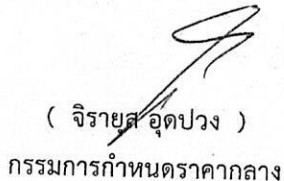 ( จิรายุส อุดปวง )
กรรมการกำหนดราคากลาง